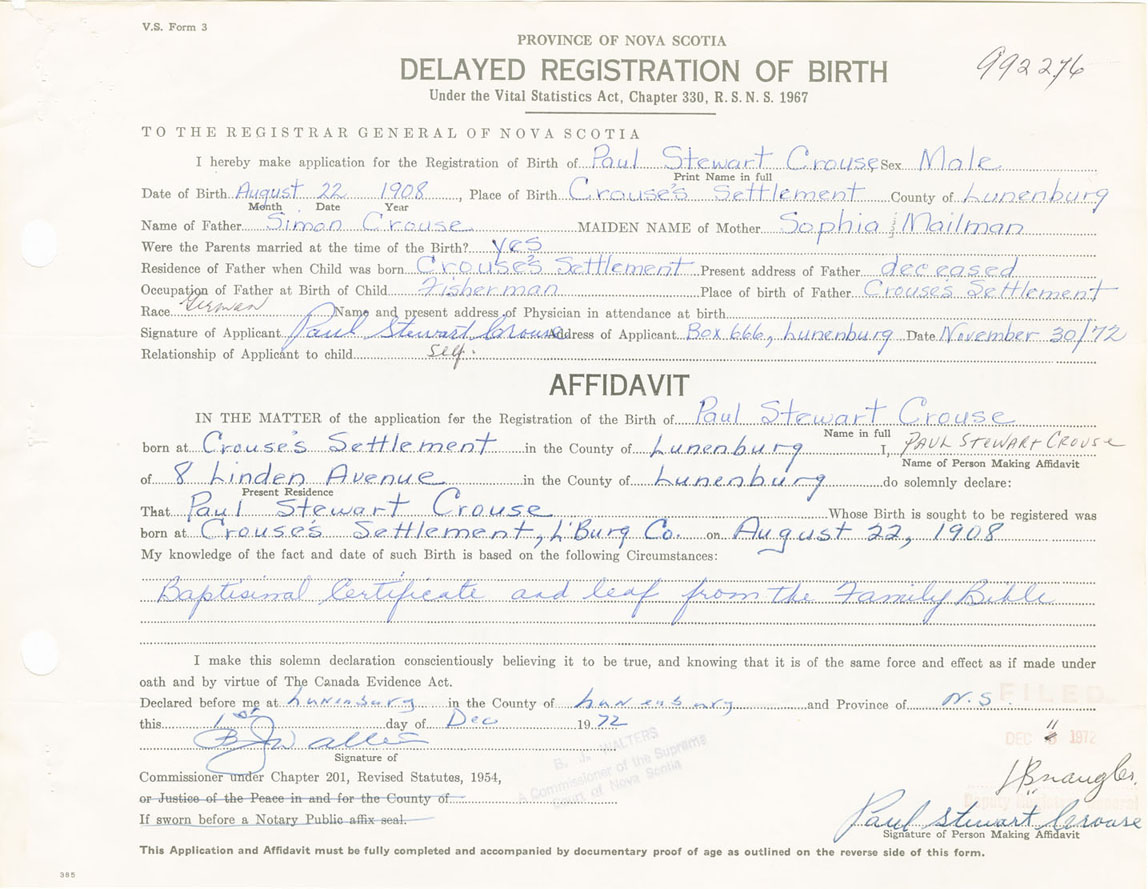 V.S. Form 3
PROVINCE OF NOVA SCOTIA
992276
DELAYED REGISTRATION OF BIRTH
Under the Vital Statistics Act, Chapter 330, R.S.N.S. 1967
TO THE REGISTRAR GENERAL OF NOVA SCOTIA
I hereby make application for the Registration of Birth of Paul Stewart Crouse Sex Male
Print Name in full
Date of Birth August 22 1908, Place of Birth Crouse's Settlement County of Lunenburg
Month Date Year
Name of Father Simon Crouse MAIDEN NAME of Mother Sophia Mailman
Were the Parents married at the time of the Birth? yes
Residence of Father when Child was born Crouse's Settlement Present address of Father deceased
Occupation of Father at Birth of Child Fisherman Place of birth of Father Crouse's Settlement
Race German Name and present address of Physician in attendance at birth
Signature of Applicant Paul Stewart Crouse Address of Applicant Box 666, Lunenburg Date November 30/72
Relationship of Applicant to child self.
AFFIDAVIT
IN THE MATTER of the application for the Registration of the Birth of Paul Stewart Crouse
Name in full
born at Crouse's Settlement in the County of Lunenburg I, PAUL STEWART CROUSE
Name of Person Making Affidavit
of 8 Linden Avenue in the County of Lunenburg do solemnly declare:
Present Residence
That Paul Stewart Crouse Whose Birth is sought to be registered was
born at Crouse's Settlement, L'Burg Co. on August 22, 1908
My knowledge of the fact and date of such Birth is based on the following Circumstances:
Baptisinal Certificate and leaf from the Family Bible
I make this solemn declaration conscientiously believing it to be true, and knowing that it is of the same force and effect as if made under
oath and by virtue of The Canada Evidence Act.
Declared before me at Lunenburg in the County of Lunenburg and Province of N.S.
FILED
this 1st day of Dec 1972
DEC 1972
B. J. WALTERS
A Commissioner of the Supreme
Court of Nova Scotia
Signature of
Commissioner under Chapter 201, Revised Statutes, 1954,
or Justice of the Peace in and for the County of
Deputy Registrar General
If sworn before a Notary Public affix seal.
Paul Stewart Crouse
Signature of Person Making Affidavit
This Application and Affidavit must be fully completed and accompanied by documentary proof of age as outlined on the reverse side of this form.
385